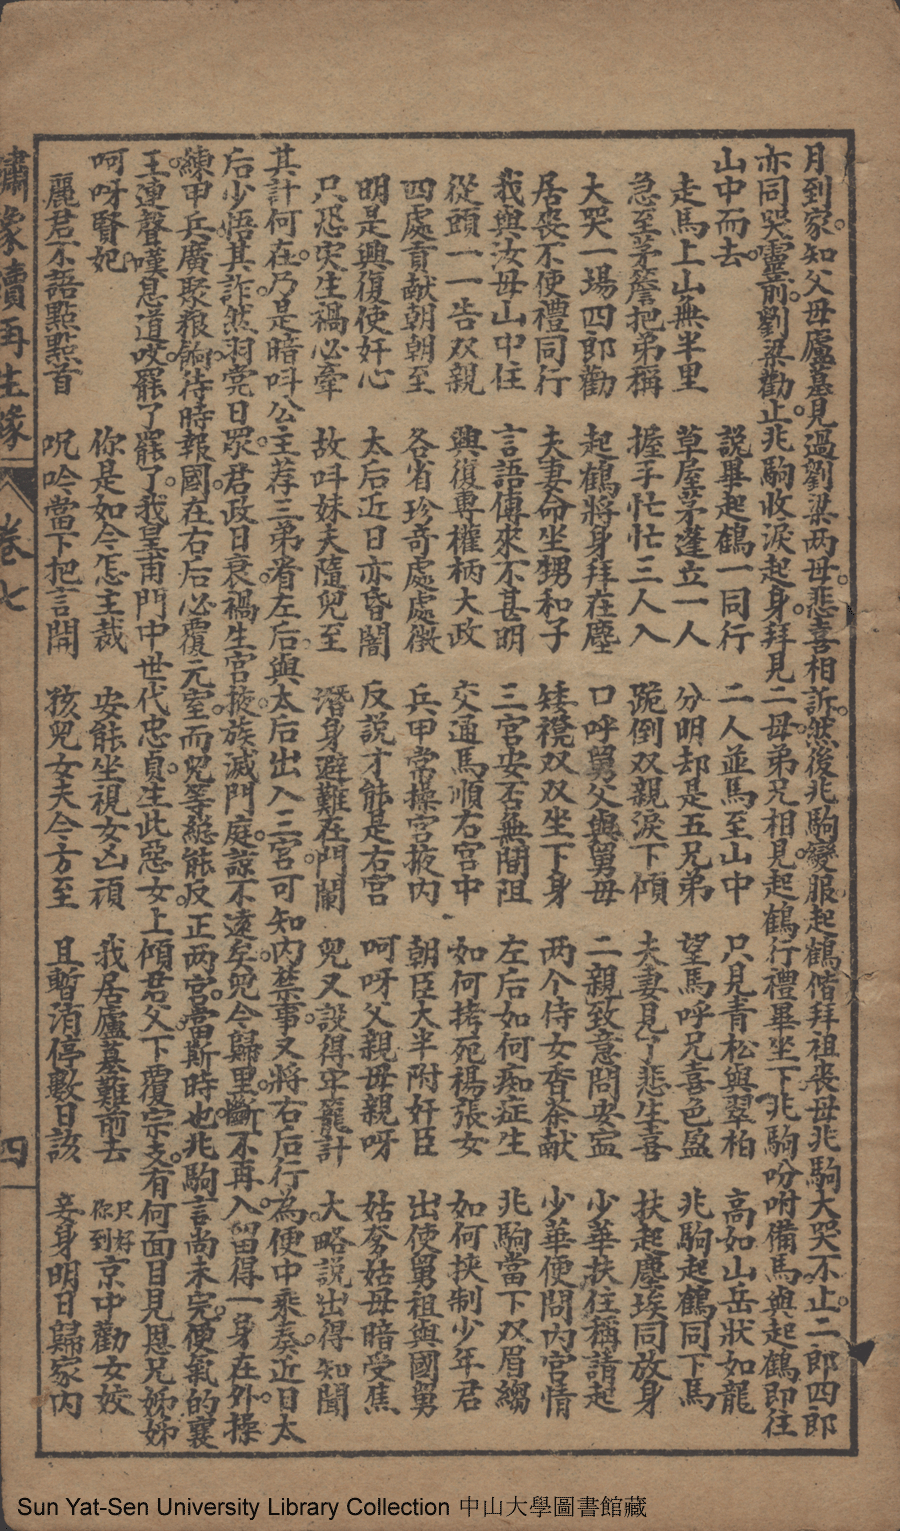 月到家。知父母廬墓。見過劉梁两母。悲喜相訴。然後兆駒變服。起鶴偕拜祖丧母。兆駒大哭不止。二郎四郎
亦同哭靈前。劉梁勸止。兆駒收淚起身。拜見二母。弟兄相見。起鶴行禮畢坐下。兆駒吩咐備馬。與起鶴即往
山中而去。 說畢起鶴一同行 二人並馬至山中 只見青松與翠柏 高如山岳狀如龍
走馬上山無半里 草屋茅蓬立一人 分明却是五兄弟 望馬呼兄喜色盈 兆駒起鶴同下馬
急至茅簷把弟稱 握手忙忙三人入 跪倒双親淚下傾 夫妻見了悲生喜 扶起塵埃同放身
大哭一場四郎勸 起鶴將身拜在塵 口呼舅父與舅母 二親致意問安寍 少華扶住稱請起
居丧不便禮同行 夫妻命坐甥和子 矮櫈双双坐下身 两个侍女香茶献 少華便問內宮情
我與汝母山中住 言語傳來不甚明 三宮安否無間阻 左后如何痴症生 兆駒當下双眉縐
從頭一一告双親 興復專權柄大政 交通馬順右宮中 如何拷死楊張女 如何挾制少年君
四處貢献朝朝至 各省珍奇處處徵 兵甲常操宮掖內 朝臣大半附奸臣 出使舅祖與國舅
明是興復使奸心 太后近日亦昏闇 反說才能是右宮 呵呀父親母親呀 姑爹姑母暗受焦
只恐灾生禍必牽 故呌妹夫隨兒至 潛身避難在門闌 兒又設得牢籠計 大略說出得知聞
其計何在。乃是暗呌公主荐三弟。省左后與太后出入三宮。可知內禁事。又將右后行為。便中乘奏。近日太
后少悟其詐。然羽党日眾。君政日衰。禍生宮掖。族滅門庭。諒不遠矣。兒今歸里。斷不再入。留得一身在外。操
練甲兵。廣聚粮餉。待時報國。在右后必覆元室。而兒等縂能反正两宮。當斯時也。兆駒言尚未完。使氣的襄
王連聲嘆息道。哎罷了罷了。我皇甫門中世代忠貞。生此惡女。上傾君父。下覆宗支。有何面目見恩兄姊姊
呵呀賢妃 你是如今怎主裁 安能坐視女凶頑 我居廬墓難前去 只好你到京中勸女姣
麗君不語點點首 呪吟當下把言開 孩兒女夫今方至 且暫消停數日該 妾身明日歸家內
繡像續再生緣 卷七 四
Sun Yat-Sen University Library Collection 中山大學圖書館藏